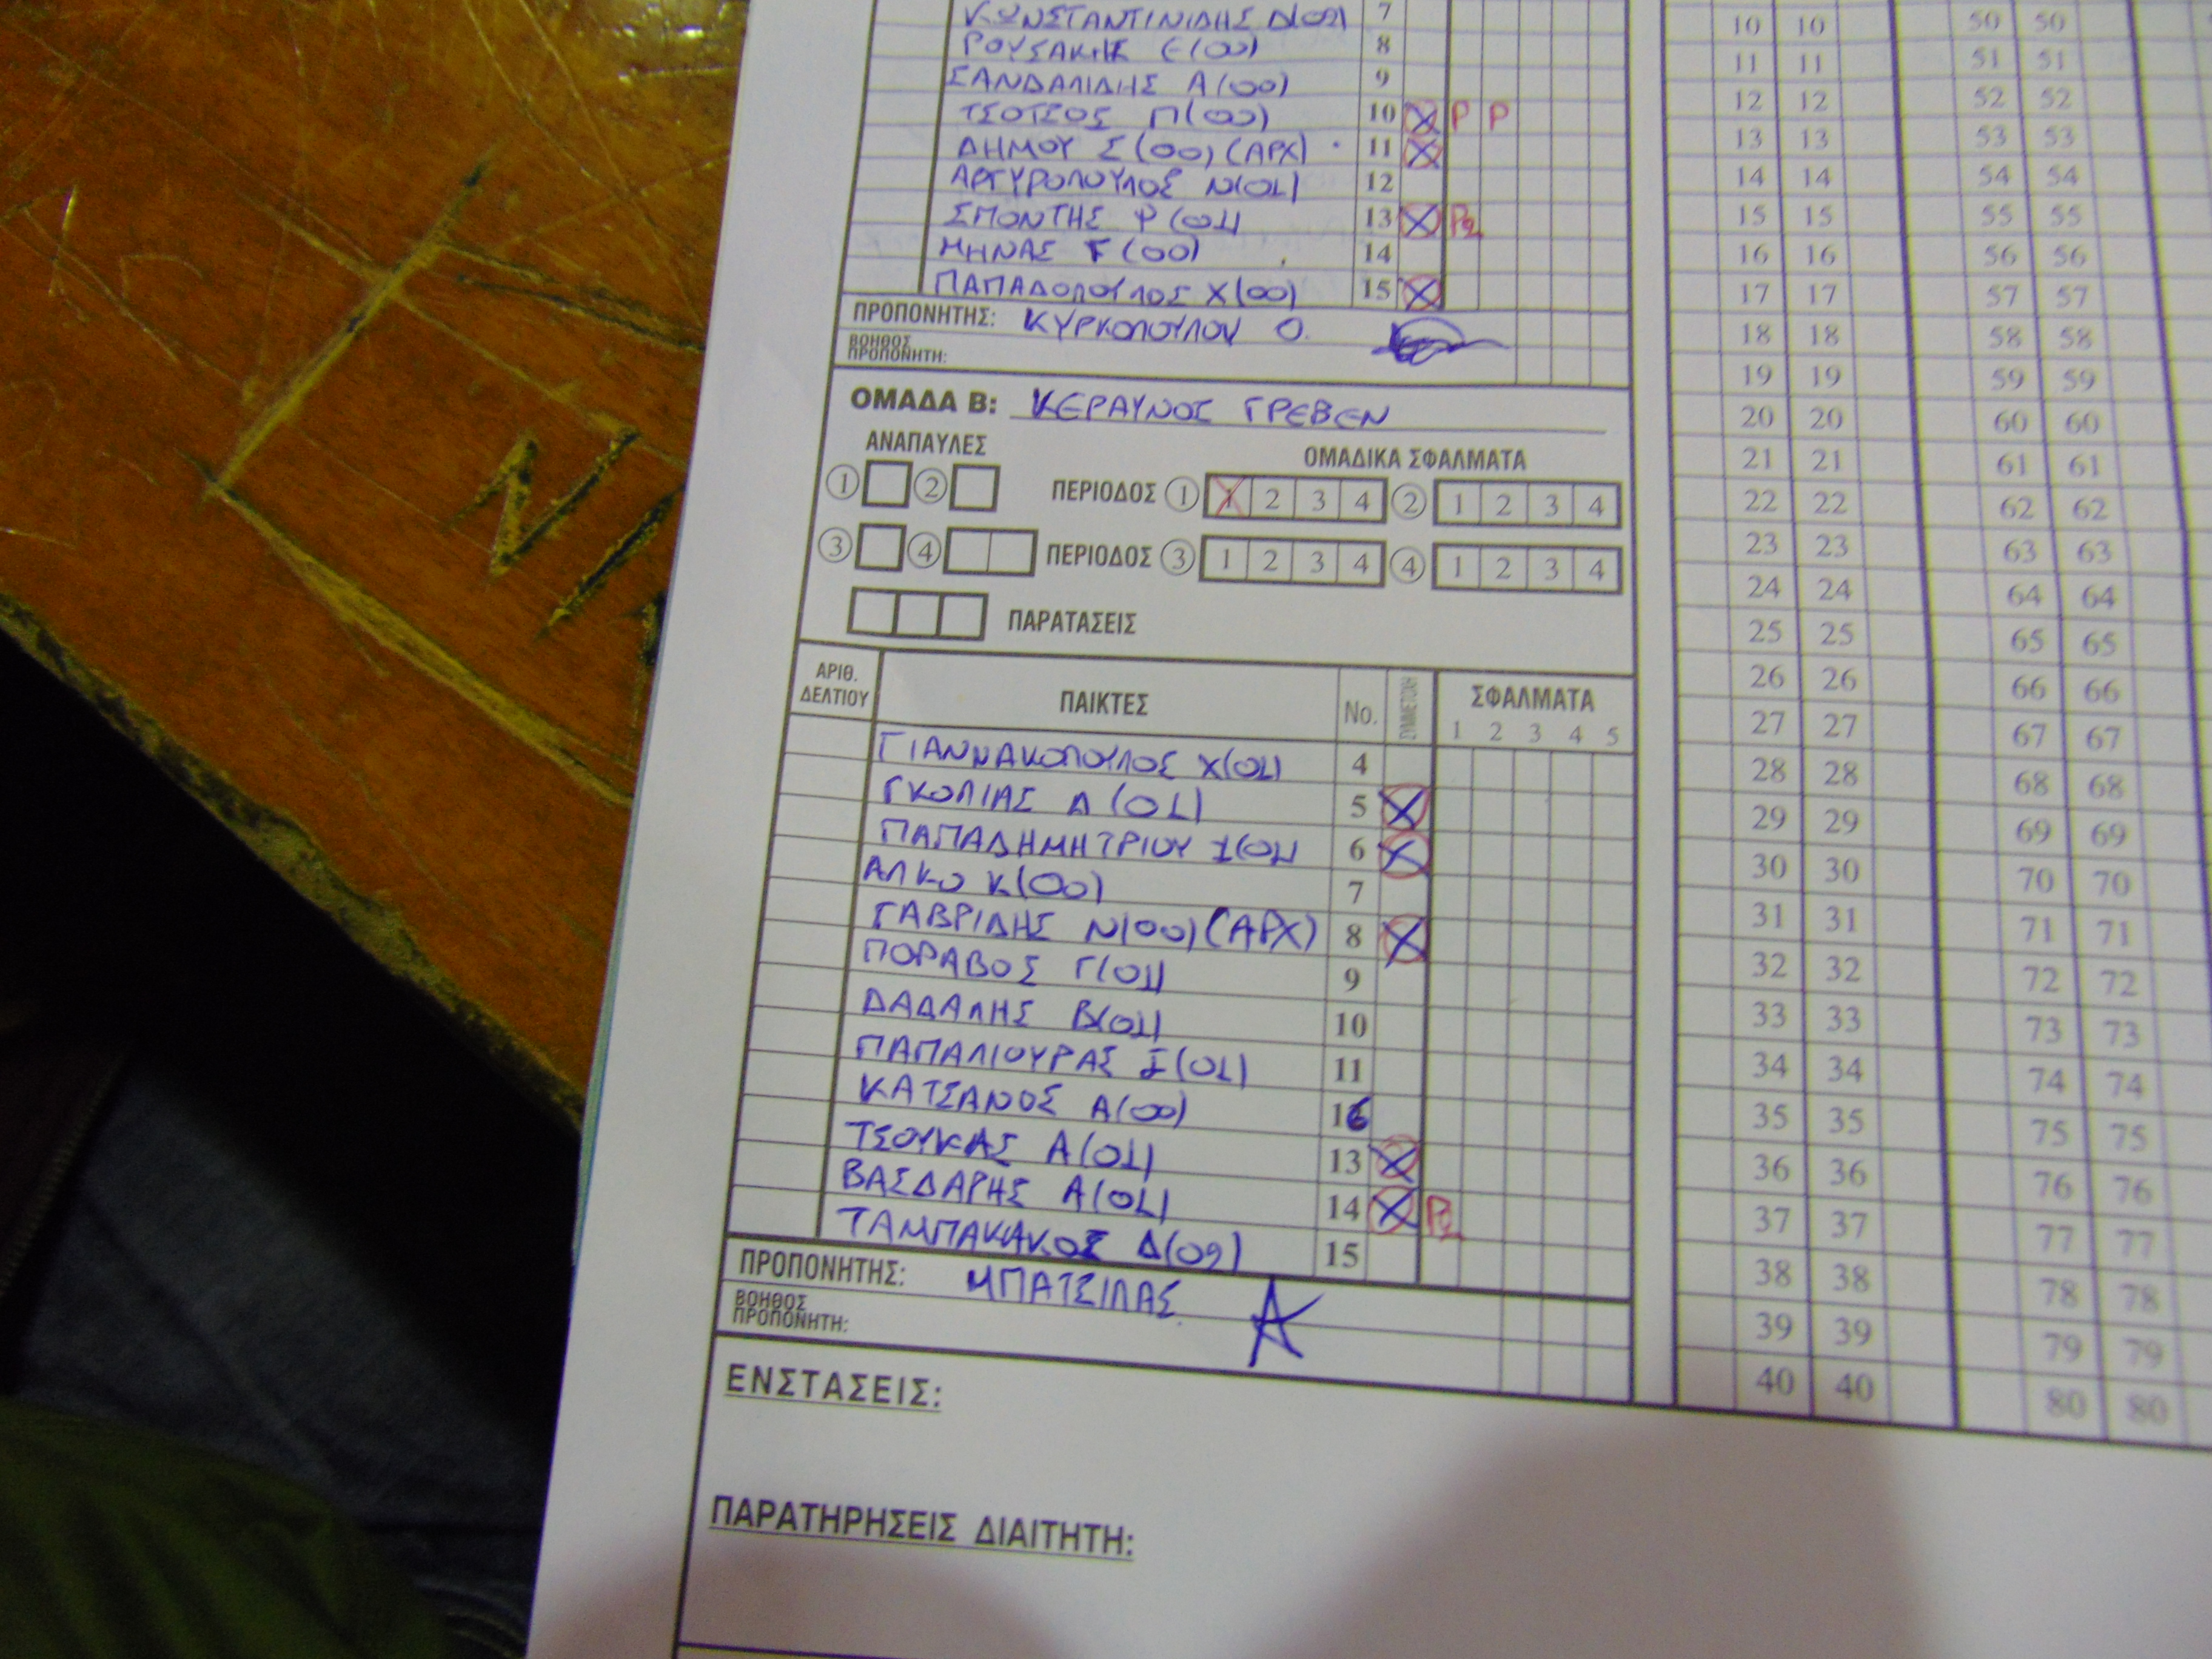 ΚΩΝΣΤΑΝΤΙΝΙΔΗΣ Δ(02) 7 10 10 50 50
ΡΟΥΣΑΚΗΣ Ε(00) 8 11 11 51 51
ΣΑΝΔΑΛΙΔΗΣ Α(00) 9 12 12 52 52
ΤΣΟΤΣΟΣ Π(00) 10 X P P 13 13 53 53
ΔΗΜΟΥ Σ(00) (ΑΡΧ) 11 X 14 14 54 54
ΑΡΓΥΡΟΠΟΥΛΟΣ Ν(01) 12 15 15 55 55
ΣΠΟΝΤΗΣ Ψ(01) 13 X P2 16 16 56 56
ΜΗΝΑΣ Γ(00) 14 17 17 57 57
ΠΑΠΑΔΟΠΟΥΛΟΣ Χ(00) 15 X 18 18 58 58
ΠΡΟΠΟΝΗΤΗΣ: ΚΥΡΚΟΠΟΥΛΟΥ Ο. 19 19 59 59
ΒΟΗΘΟΣ
ΠΡΟΠΟΝΗΤΗ:
ΟΜΑΔΑ Β: ΚΕΡΑΥΝΟΣ ΓΡΕΒΕΝ 20 20 60 60
ΑΝΑΠΑΥΛΕΣ ΟΜΑΔΙΚΑ ΣΦΑΛΜΑΤΑ 21 21 61 61
1 2 ΠΕΡΙΟΔΟΣ 1 1 2 3 4 2 1 2 3 4 22 22 62 62
3 4 ΠΕΡΙΟΔΟΣ 3 1 2 3 4 4 1 2 3 4 23 23 63 63
ΠΑΡΑΤΑΣΕΙΣ 24 24 64 64
25 25 65 65
ΑΡΙΘ. ΔΕΛΤΙΟΥ ΠΑΙΚΤΕΣ No. ΣΥΜΜΕΤΟΧΗ ΣΦΑΛΜΑΤΑ 26 26 66 66
1 2 3 4 5 27 27 67 67
ΓΙΑΝΝΑΚΟΠΟΥΛΟΣ Χ(01) 4 28 28 68 68
ΓΚΟΛΙΑΣ Δ(01) 5 X 29 29 69 69
ΠΑΠΑΔΗΜΗΤΡΙΟΥ Ι(01) 6 X 30 30 70 70
ΑΛΚΟ Κ(00) 7 31 31 71 71
ΓΑΒΡΙΔΗΣ Ν(00) (ΑΡΧ) 8 X 32 32 72 72
ΠΟΡΑΒΟΣ Γ(01) 9 33 33 73 73
ΔΑΔΑΛΗΣ Β(01) 10 34 34 74 74
ΠΑΠΑΛΙΟΥΡΑΣ Ι(01) 11 35 35 75 75
ΚΑΤΣΑΝΟΣ Α(00) 16 36 36 76 76
ΤΣΟΥΚΑΣ Α(01) 13 X 37 37 77 77
ΒΑΣΔΑΡΗΣ Α(01) 14 X P2 38 38 78 78
ΤΑΜΠΑΚΑΚΟΣ Δ(09) 15 39 39 79 79
ΠΡΟΠΟΝΗΤΗΣ: ΜΠΑΤΣΙΛΑΣ 40 40 80 80
ΒΟΗΘΟΣ
ΠΡΟΠΟΝΗΤΗ:
ΕΝΣΤΑΣΕΙΣ:
ΠΑΡΑΤΗΡΗΣΕΙΣ ΔΙΑΙΤΗΤΗ: